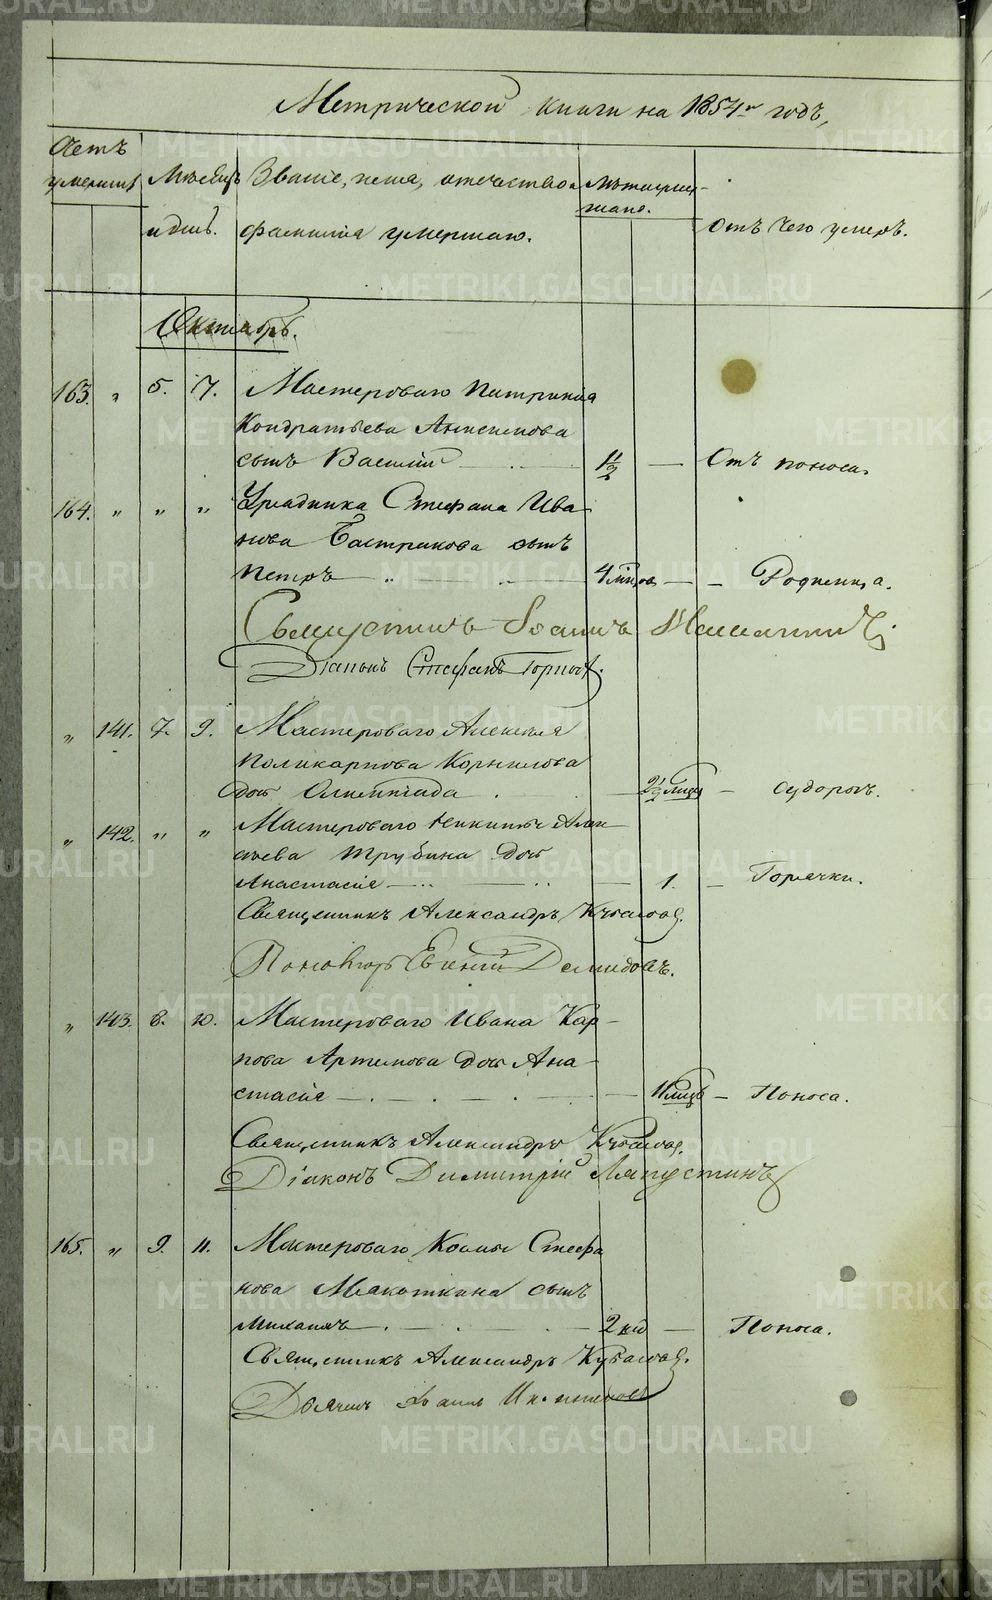 Метрической книги на 1854й годъ,
Счетъ умершихъ
Мѣсяцъ и день.
Званіе, имя, отечество и фамилія умершаго.
Лѣта умершаго.
Отъ чего умеръ.
Октябрь.
163. „ 5. 7. Мастероваго Патрикія
Кондратьева Анисимова
сынъ Василій 1 1/2 — Отъ поноса.
164. „ „ „ Урядника Стефана Ива
нова Бастрикова сынъ
Петръ — 4 мѣсяцовъ — Родимица.
Священникъ Іоаннъ
Діаконъ Стефанъ
„ 141. 7. 9. Мастероваго Алексѣя
Поликарпова Корнилова
дочь Олимпіада 2 1/2 мѣсяц — Судорогъ.
„ 142. „ „ Мастероваго Никиты Алек
сѣева Трубина дочь
Анастасія — 1. — Горячки.
Священникъ Александръ
Пономарь Евгеній Демидовъ.
„ 143. 8. 10. Мастероваго Ивана Кар-
пова Артемова дочь Ана-
стасія — 11 мѣсяц — Поноса.
Священникъ Александръ
Діаконъ Димитрій Ляпустинъ
165. „ 9. 11. Мастероваго Космы Стефа
нова Мякоткина сынъ
Михаилъ — 2 нед — Поноса.
Священникъ Александръ
Дьячекъ
METRIKI.GASO-URAL.RU